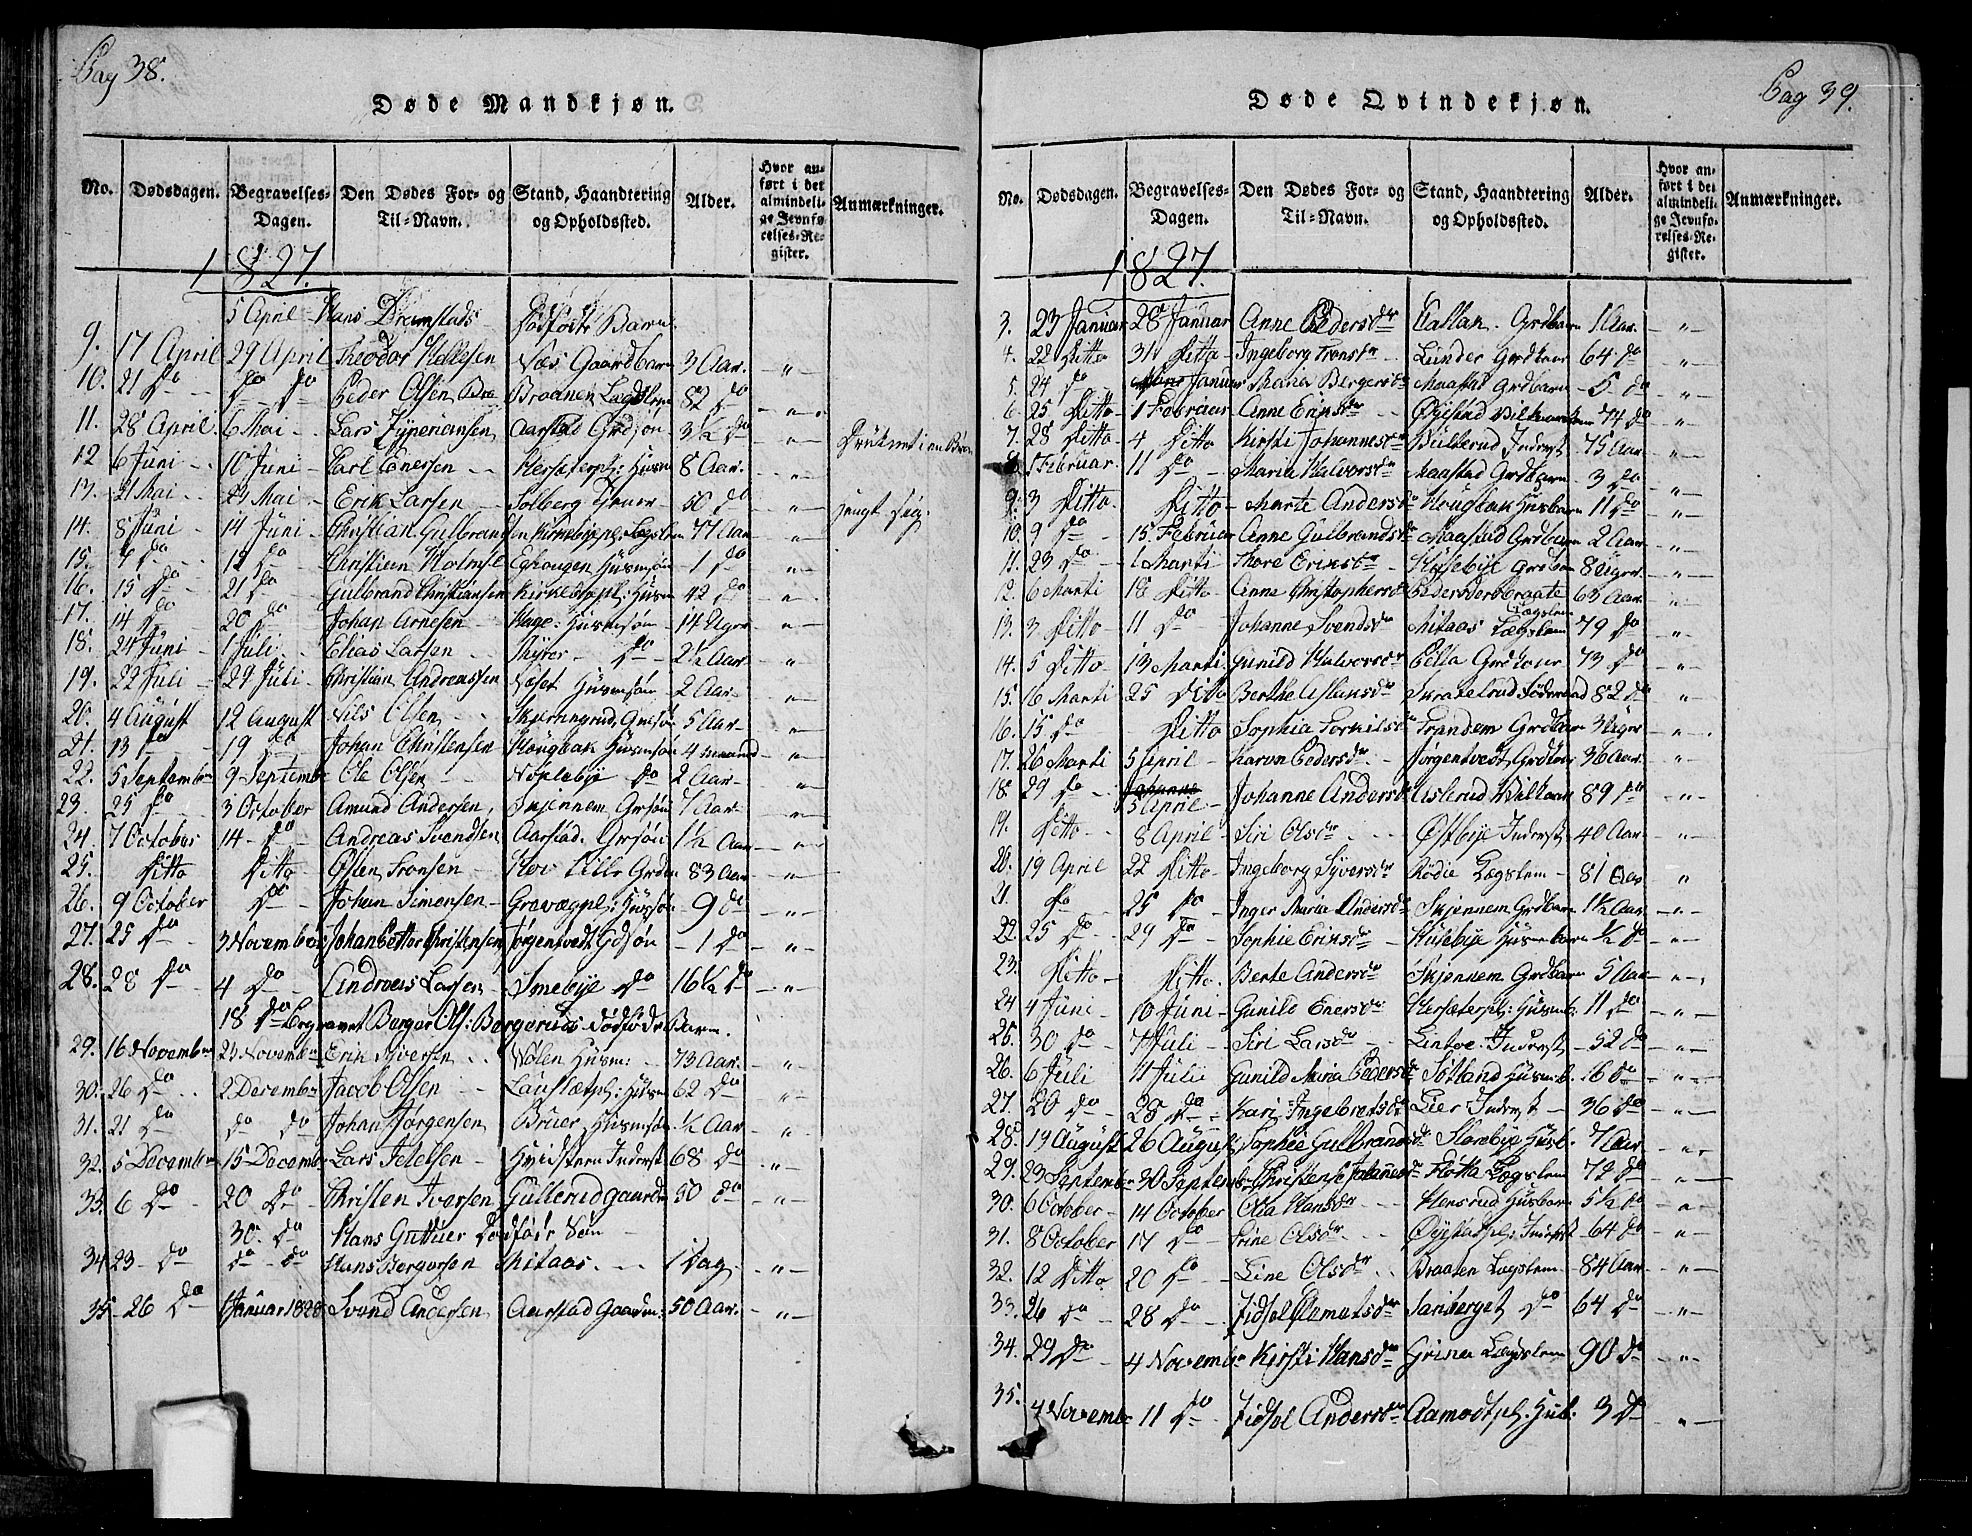 Pag 38.
Døde Mandkjøn.
No. Dødsdagen. Begravelses-Dagen. Den Dødes For- og Til-Navn. Stand, Haandtering og Opholdssted. Alder. Hvor anført i det almindelige Jevnførelses-Register. Anmærkninger.
1827.
5 April Hans Dramstads Dødfødte Barn.
9. 17 April 29 April Theodor Hellesen Næs Gaardbarn 3 Aar. - " -
10. 21 do do do Peder Olsen Braanen Lægdslem 82 do - " -
11. 28 April. 6 Mai Lars Zyperiansen Aarstad Grdsøn 3½ do - " -
12 6 Juni 10 Juni Carl Enersen Hersæterpl: Husm 8 Aar. - " - Druknet i en Brøn
13. 21 Mai 23 Mai Erik Larsen Solberg 50 do - " - hengt sig.
14. 8 Juni 14 Juni Christian Gulbrandsen Kirkebyepl. Lægslem 77 Aar - " -
15. 7 do 12 do Christian Holmst Ezhougen Husmsøn 1 do - " -
16. 15 do 21 do Gulbrand Christiansen Kirkebypl: Husm 42 do - " -
17. 14 do 20 do Johan Arnesen Hage Husmsøn 14 Uger - " -
18. 24 Juni 1 Juli Elias Larsen Thyrer do 2½ Aar - " -
19. 22 Juli 29 Juli Christian Andreassen Næset Husmsøn 2 Aar - " -
20. 4 August 12 August Nils Olsen Skjerringrud Grdsøn 5 Aar - " -
21. 13 do 19 do Johan Christensen Hougbak Husmsøn 4 maaned - " -
22. 5 September 9 Septembr Ole Olsen Nøklebye do 2 Aar - " -
23. 25 do 3 October Amund Andersen Skjennem Grsøn 7 Aar - " -
24. 7 October 14 do Andreas Svendsen Aarstad. Grsøn 1½ Aar - " -
25. Ditto Ditto Østen Tronsen Hov Lille Grdm 83 Aar - " -
26. 9 October do Johan Simensen Gravægpl: Hussøn 9 do - " -
27. 25 do 3 November Johan Petter Christensen Jørgentvedt Gdsøn 1 do - " -
28. 28 do 4 do Andreas Larsen Smebye do 16½ do - " -
18 do Begravet Berger Ols: Bergeruds Dødfødte Barn.
29. 16 Novembr 25 Novembr Erik Syversen Nølen Husm: 73 Aar. - " -
30. 26 do 2 Decembr Jacob Olsen Lauslætpl: Husm 62 do - " -
31. 21 do do do Johan Jørgensen Bruer Husmsøn ½ Aar - " -
32. 5 Decembr 15 Decembr Lars Jetelsen Hvidsteen Inderst 68 do - " -
33. 6 do 20 do Christen Iversen Gullerud gaardm 50 do - " -
30. do Hans Guttuer Dødfødt Søn
34 23 do do do Hans Bergersen Mitaas 1 Dag - " -
35 26 do 1 Januar 1828 Svend Andersen Aarstad Gaardm: 50 Aar. - " -
Pag 39.
Døde Qvindekjøn.
No. Dødsdagen. Begravelses-Dagen. Den Dødes For- og Til-Navn. Stand, Haandtering og Opholdssted. Alder. Hvor anført i det almindelige Jevnførelses-Register. Anmærkninger.
1827.
3. 23 Januar 28 Januar Anne Pedersdr Callak Grdbarn 1 Aar - " -
4. 22 Ditto 31 Ditto Ingeborg Tronsdr Lunder Grdkone 64 do - " -
5. 24 do Januar Maria Bergersdr Maastad Grdbarn 5 do - " -
6. 25 Ditto 1 Februar Anne Eriksdr Øyestad 74 do - " -
7. 28 Ditto 4 Ditto Kirsti Johannesdr Bullerud Inderst 75 Aar - " -
8. 1 Februar. 11 do Maria Halvorsdr Maastad Grdbarn 3 do - " -
9. 3 Ditto Ditto Marte Andersdr Hougbak Husbarn 11 do - " -
10. 9 do 15. Februar Anne Gulbrandsdr Maastad Grdbarn 2 Aar - " -
11. 23 do 1 Marti Thore Eriksdr Husebye Grdbarn 8 Uger - " -
12. 6 Marti 18 Ditto Anne Christophersdr Pedersbraate Lægslem 63 Aar - " -
13. 3 Ditto 11 do Johanne Svendsdr Mitaas Lægslem 79 do - " -
14. 5 Ditto 13 Marti Gunild Halvorsdr Cella Grdkone 73 do - " -
15. 16 Marti 25 Ditto Berthe Aslaksdr Skratelrud Føderaad 82 do - " -
16. 15 do Ditto Sophia Torkilsdr Trondem Grdbarn 3 Uger - " -
17. 26 Marti 5 April Karen Pedersdr Jørgentvedt Grdkone 36 Aar. - " -
18. 29 do Johanne 5 April Johanne Andersdr Aslerud 89 do - " -
19. Ditto 8 April Siri Olsdr Østbye Inderst 40 Aar - " -
20. 19 April 22 Ditto Ingeborg Syversdr Rødie Lægslem 81 Aar "
21. do 25 do Inger Maria Andersdr Skjennem Grdbarn 1½ Aar - " -
22 25 do 29 do Sophie Eriksdr Husebye Husmbarn ½ do - " -
23. Ditto Ditto Berte Andersdr Skjennem Grdbarn 5 Aar - " -
24 4 Juni 10 Juni Gunild Enersdr Hersæterpl: Husmb: 11 do - " -
25. 30 do 7 Juli Siri Larsdr Lintoe Inderst 52 do - " -
26. 6 Juli 11 Julii Gunild Maria Pedersdr Søtland Husmb. 16 do - " -
27. 20 do 28 do Kari Ingebretsdr Lier Inderst 36 do - " -
28. 19 August 26 August Sophie Gulbrandsdr Slorebye Husb. 7 Aar - " -
29. 23 Septembr 30 Septembr Christense Johannesdr Fløtta Lægslem 72 do - " -
30. 6 October 14 October Olia Hansdr Hensrud Husbarn 5½ do - " -
31. 8 October 17 do Trine Olsdr Øyestadpl: Inderst 64 do - " -
32. 12 Ditto 20 do Line Olsdr Braaten Lægslem 84 Aar - " -
33. 26 do 28 do Zidsel Clemetsdr Sariberget do 64 do - " -
34. 29 do 4 Novembr Kjersti Hansdr Griner Lægdslem 90 do - " -
35. 4 Novembr 11 do Zidsel Andersdr Aamodtpl: Husb: 3 do - " -